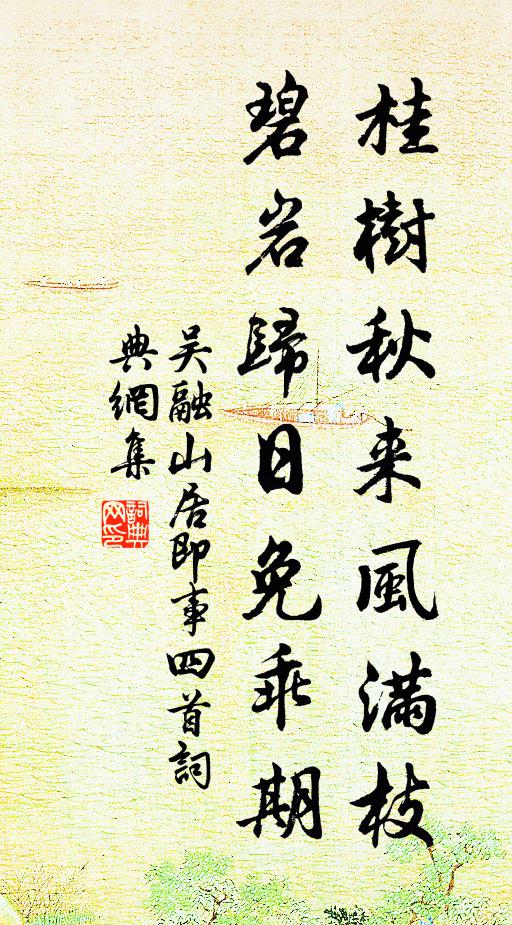 桂樹秋来風满枝
碧岩歸日免乖期
吴融山居即事四首詞
典網集
詞典网印